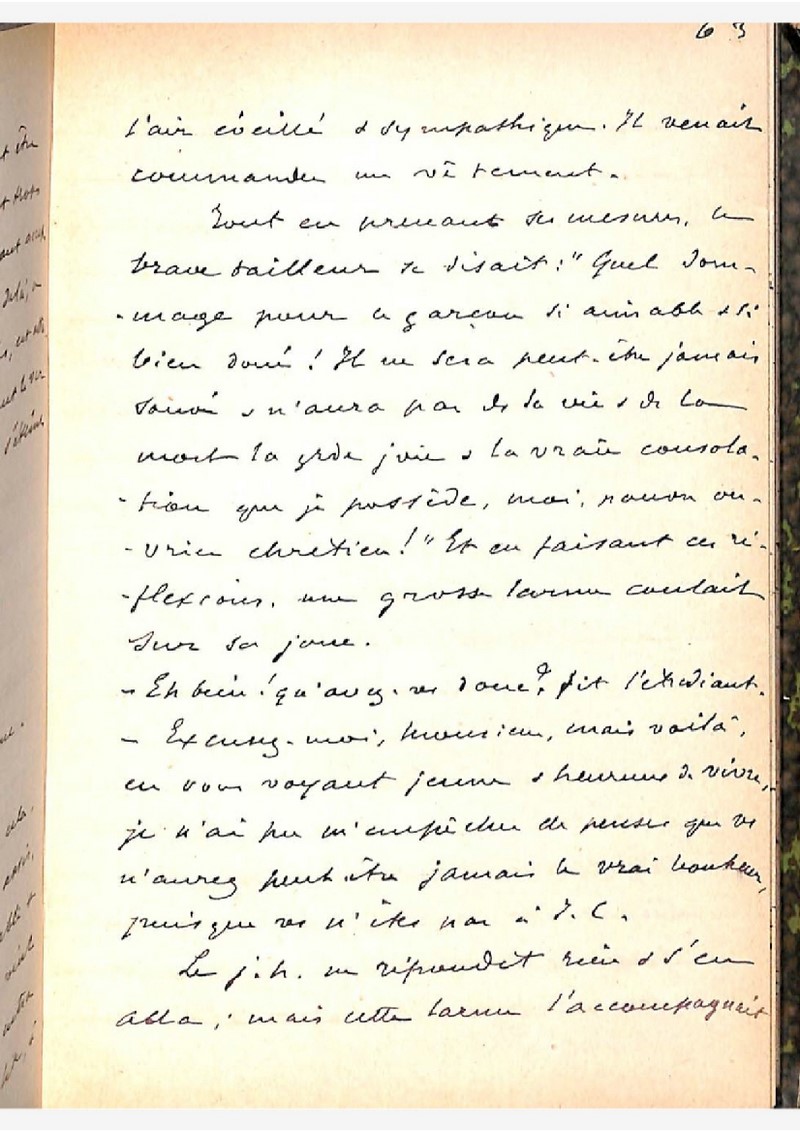 63
l'air éveillé & sympathique. Il venait
commander un vêtement.
Tout en prenant ses mesures, le
brave tailleur se disait : " Quel dom-
-mage pour ce garçon si aimable & si
bien doué ! Il ne sera peut-être jamais
sauvé & n'aura pas ds sa vie & ds la
mort la grde joie & la vraie consola-
-tion que je possède, moi, pauvre ou-
-vrier chrétien ! " Et en faisant ces ré-
-flexions, une grosse larme coulait
sur sa joue.
- Eh bien ! qu'avez-vs donc ? fit l'étudiant.
- Excusez-moi, Monsieur, mais voilà,
en vous voyant jeune & heureux de vivre,
je n'ai pu m'empêcher de penser que vs
n'aurez peut-être jamais le vrai bonheur,
puisque vs n'êtes pas à J. C.
Le j. h. ne répondit rien & s'en
alla ; mais cette larme l'accompagnait